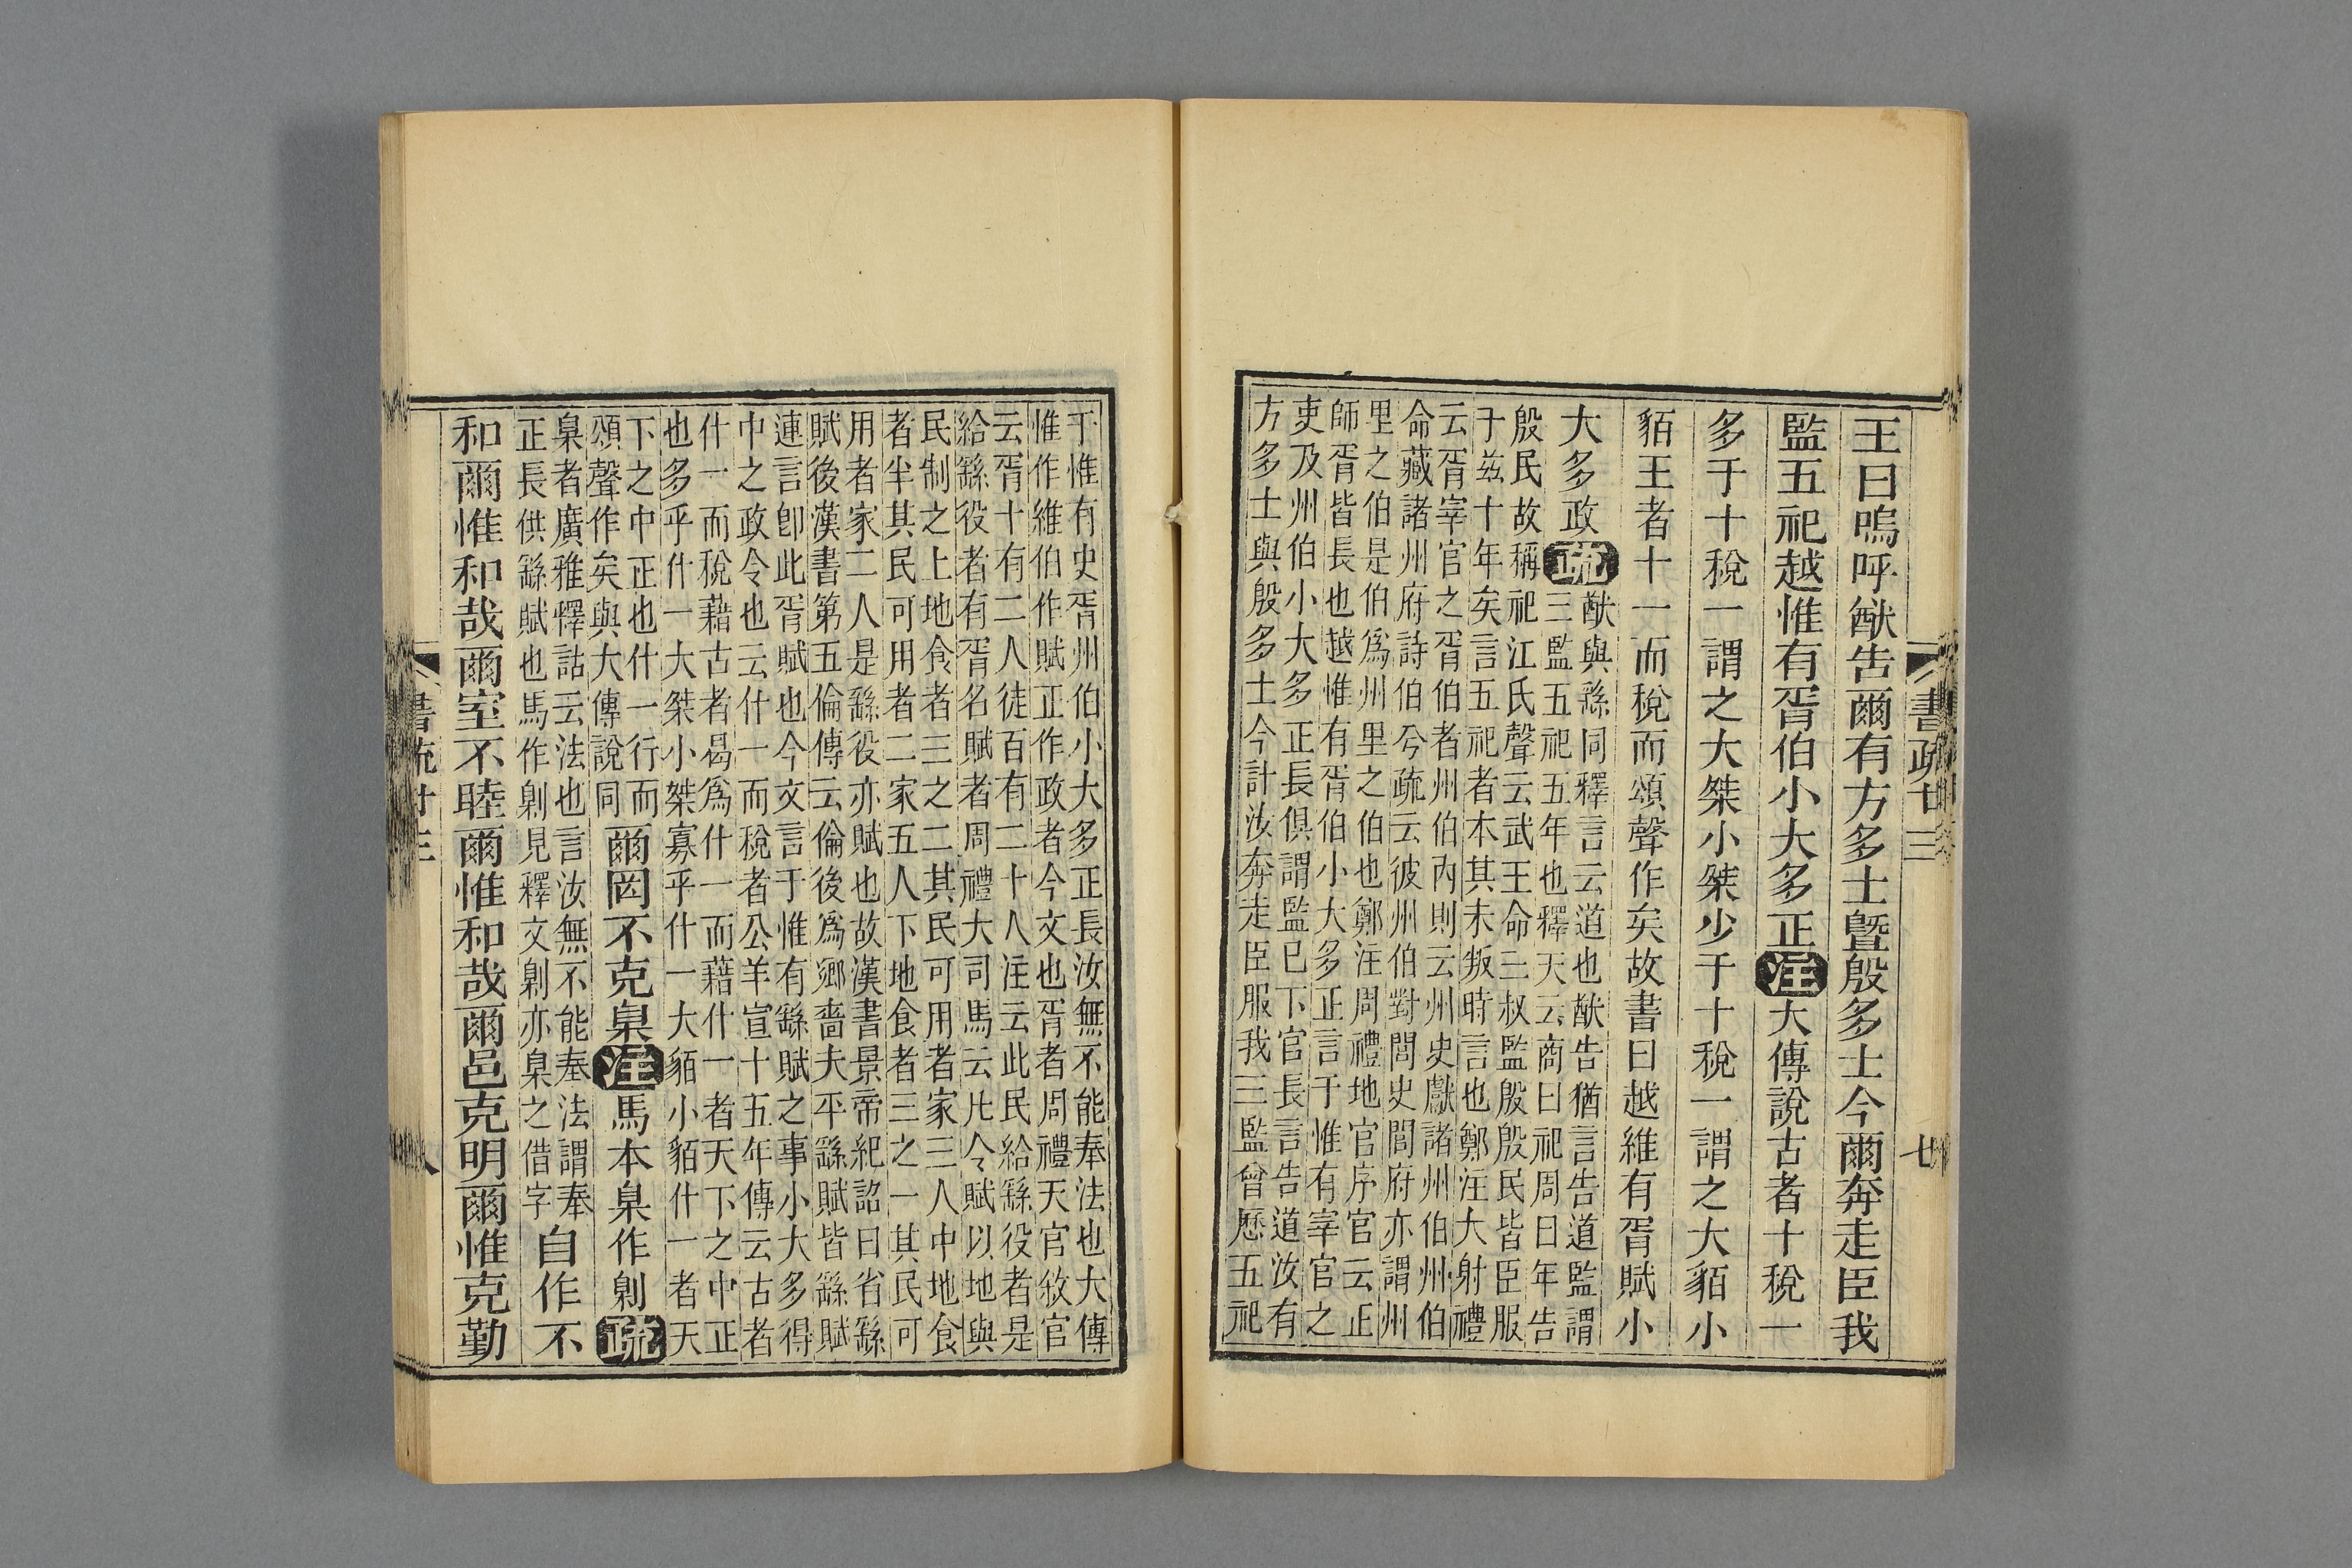 王曰嗚呼猷告爾有方多士曁殷多士今爾奔走臣我
監五祀越惟有胥伯小大多正注大傳說古者十稅一
多于十稅一謂之大桀小桀少于十稅一謂之大貊小
貊王者十一而稅而頌聲作矣故書曰越維有胥賦小
大多政疏
猷與繇同釋言云道也猷告猶言告道監謂
三監五祀五年也釋天云商曰祀周曰年告
殷民故稱祀江氏聲云武王命三叔監殷殷民皆臣服
于茲十年矣言五祀者本其未叛時言也鄭注大射禮
云胥宰官之胥伯者州伯內則云州史獻諸州伯州伯
命藏諸州府詩伯兮疏云彼州伯對閭史閭府亦謂州
里之伯是伯爲州里之伯也鄭注周禮地官序官云正
師胥皆長也越惟有胥伯小大多正言于惟有宰官之
吏及州伯小大多正長俱謂監已下官長言告道汝有
方多士與殷多士今計汝奔走臣服我三監曾歷五祀
書疏廿三
七
于惟有史胥州伯小大多正長汝無不能奉法也大傳
惟作維伯作賦正作政者今文也胥者周禮天官敘官
云胥十有二人徒百有二十八注云此民給繇役者是
給繇役者有胥名賦者周禮大司馬云凡令賦以地與
民制之上地食者三之二其民可用者家三人中地食
者半其民可用者二家五人下地食者三之一其民可
用者家二人是繇役亦賦也故漢書景帝紀詔曰省繇
賦後漢書第五倫傳云倫後爲鄉嗇夫平繇賦皆繇賦
連言卽此胥賦也今文言于惟有繇賦之事小大多得
中之政令也云什一而稅者公羊宣十五年傳云古者
什一而稅藉古者曷爲什一而藉什一者天下之中正
也多乎什一大桀小桀寡乎什一大貊小貊什一者天
下之中正也什一行而
頌聲作矣與大傳說同
爾罔不克臬注馬本臬作劓疏
臬者廣雅釋詁云法也言汝無不能奉法謂奉
正長供繇賦也馬作劓見釋文劓亦臬之借字
自作不
和爾惟和哉爾室不睦爾惟和哉爾邑克明爾惟克勤
八